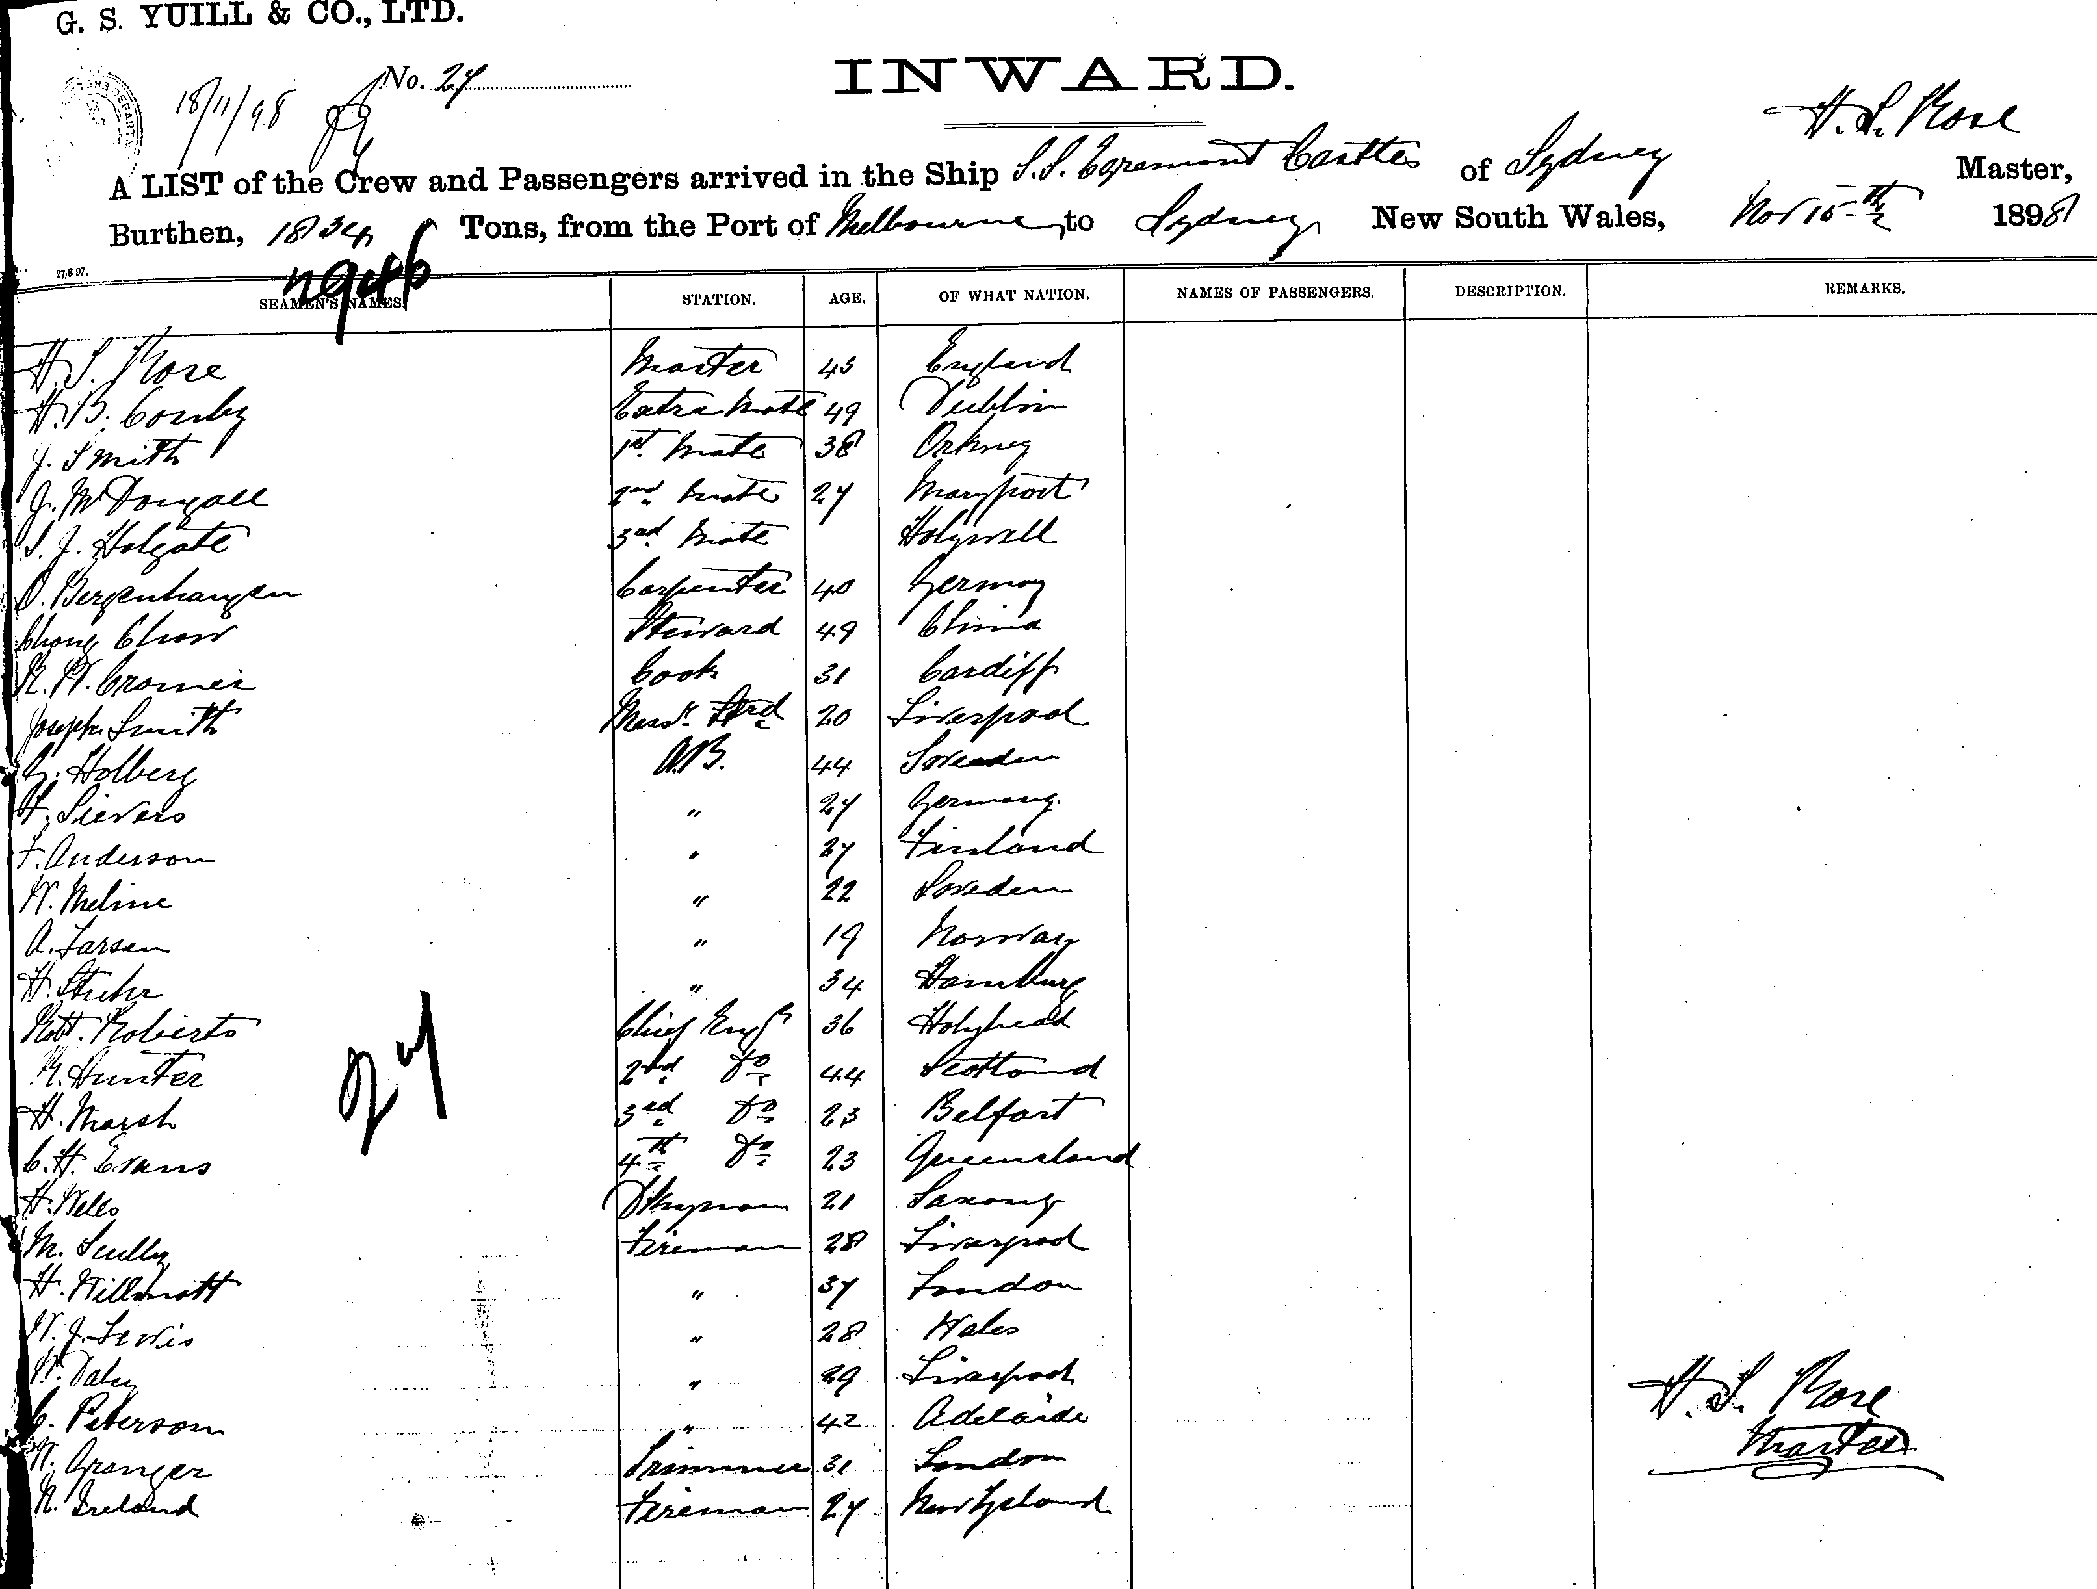 G. S. YUILL & CO., LTD.
No. 27
INWARD.
18/11/98
H. S. Rose
A LIST of the Crew and Passengers arrived in the Ship S.S. Egremont Castle of Sydney Master,
Burthen, 1834 Tons, from the Port of Melbourne to Sydney New South Wales, Nov 15th 1898
27.8.97.
SEAMEN'S NAMES. STATION. AGE. OF WHAT NATION. NAMES OF PASSENGERS. DESCRIPTION. REMARKS.
H. S. Rose Master 45 England
H. B. Conby Extra Mate 49 Dublin
J. Smith 1st Mate 38 Orkney
J. McDougall 2nd Mate 27 Maryport
S. J. Holgate 3rd Mate Holywell
O. Bergenhangen Carpenter 40 Germany
Chong Chow Steward 49 China
R. W. Cromer Cook 31 Cardiff
Joseph Smith Messr. Strd 20 Liverpool
Holberg A.B. 44 Sweden
H. Sievers " 27 Germany
F. Anderson " 27 Finland
W. Meline " 22 Sweden
A. Larsen " 19 Norway
H. Stuhr " 34 Hamburg
Robt. Roberts Chief Engr 36 Holyhead
R. Hunter 2nd Do 44 Scotland
H. Marsh 3rd Do 23 Belfast
C. H. Evans 4th Do 23 Queensland
H. Wells Dkyman 21 Saxony
M. Scully Fireman 28 Liverpool
H. Willmott " 37 London
W. J. Lewis " 28 Wales
W. Daley " 29 Liverpool
C. Peterson " 42 Adelaide
W. Granger Trimmer 31 London
N. Ireland Fireman 27 New Zealand
27
H. S. Rose
Master